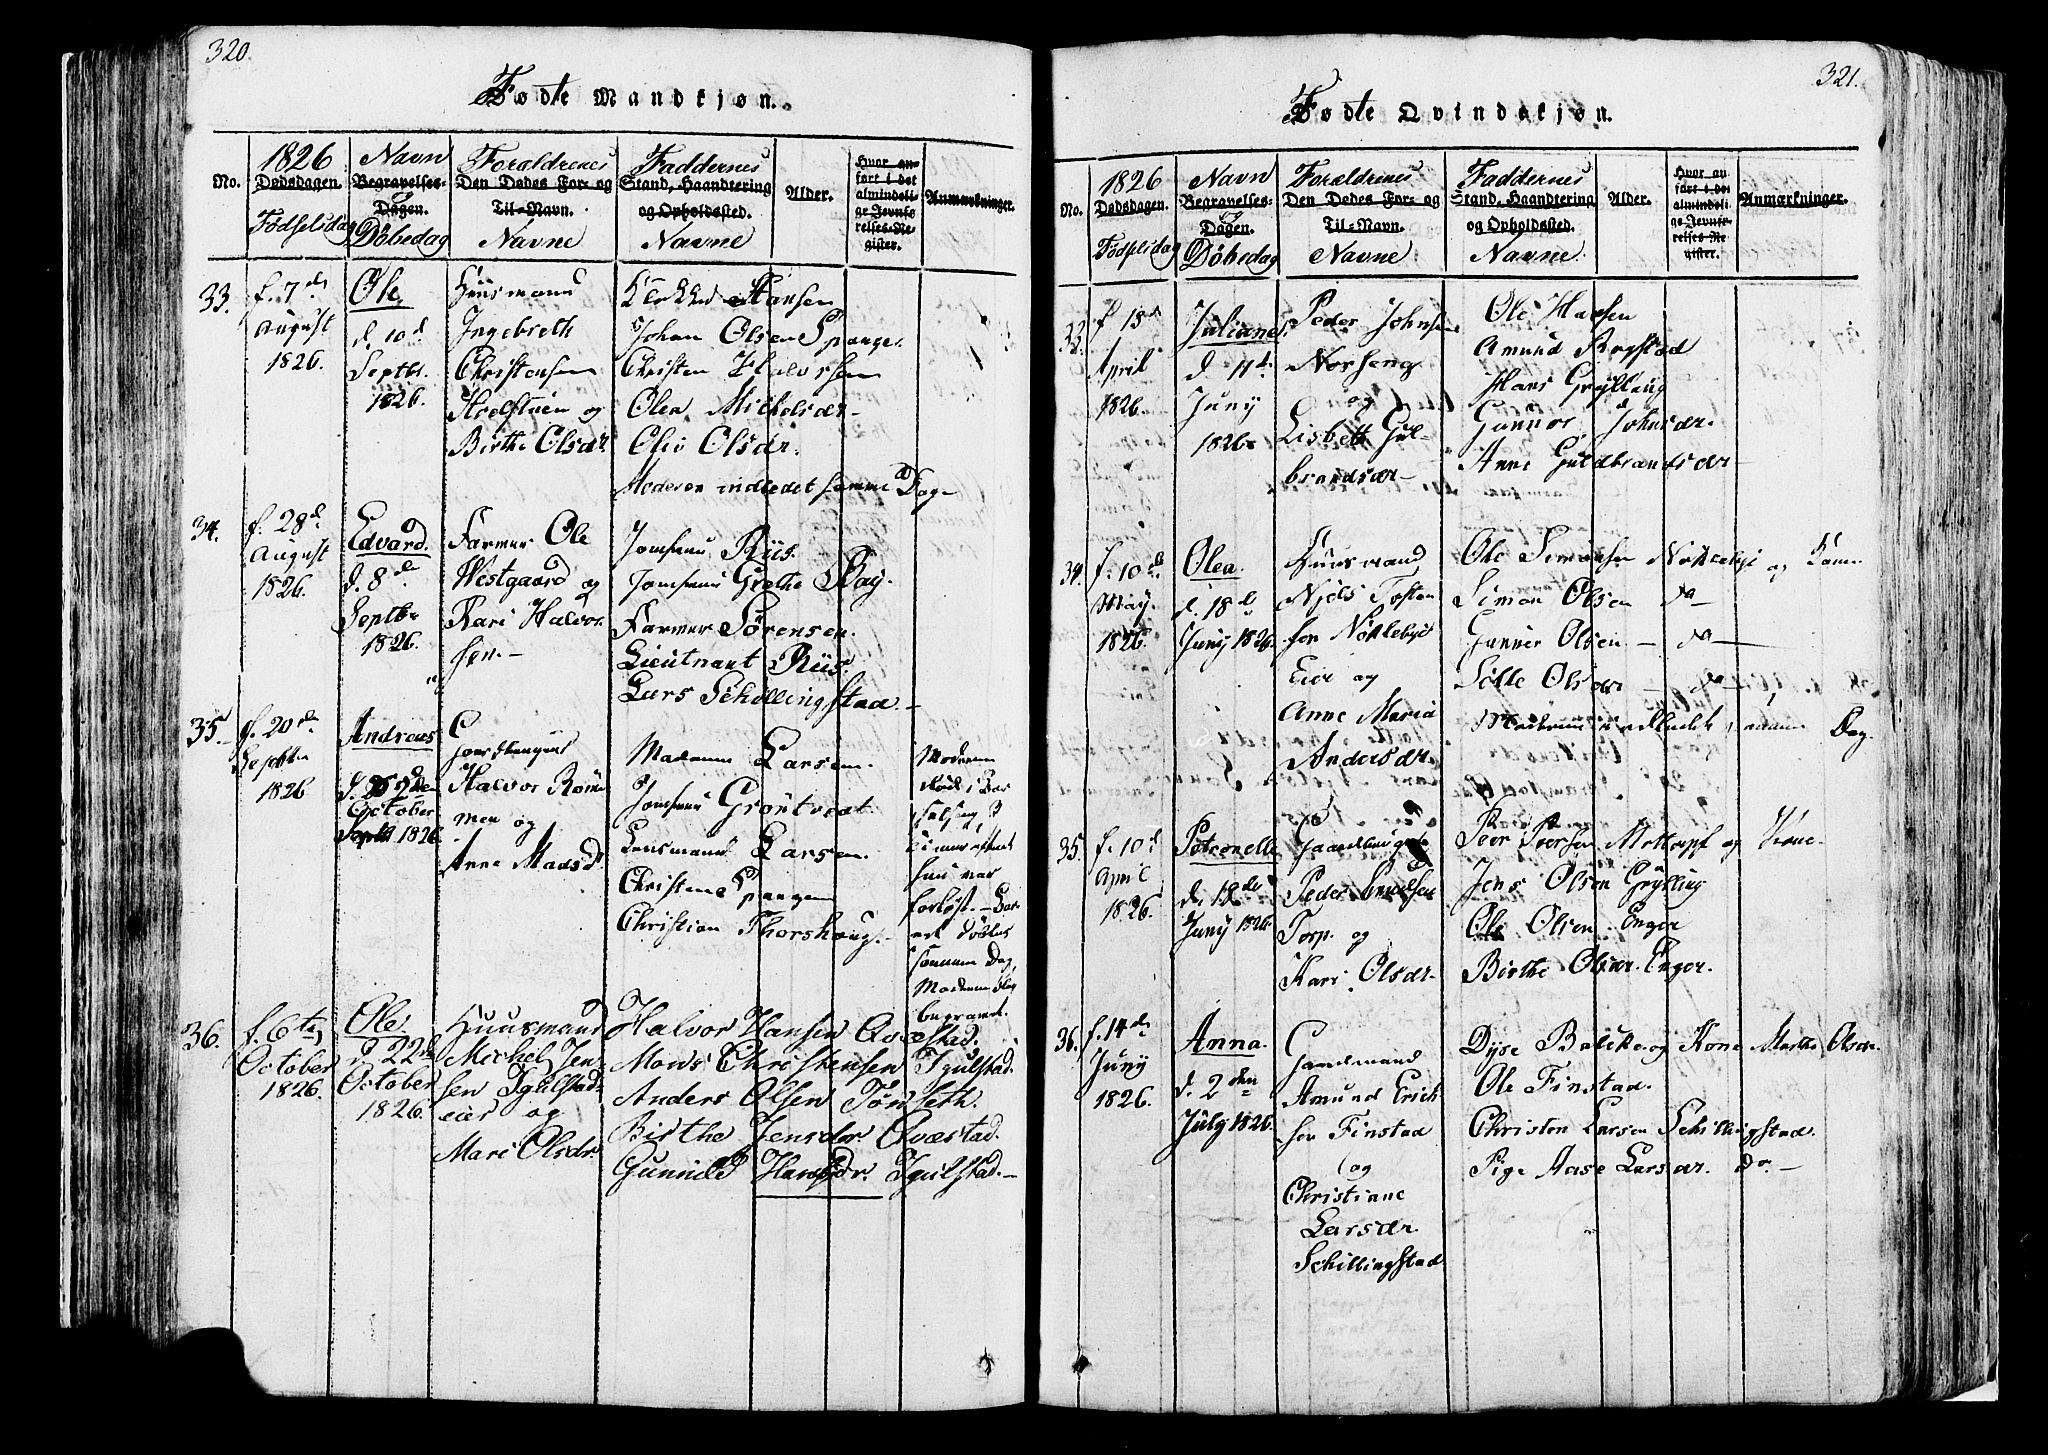 320.
Fødte Mandkjøn.
No.
1826
Dødsdagen.
Födselsdag
Navn
Begravelses-
Dagen.
og
Döbedag
Forældrenes
Den Dødes For- og
Til-Navn.
Navne
Faddernes
Stand, Haandtering
og Opholdssted.
Navne
Alder.
Hvor an-
ført i det
almindeli-
ge Jevnfø-
relses-Re-
gister.
Anmærkninger.
33.
f. 7de
August
1826.
Ole
d. 10d
Septbr.
1826.
Huusmand
Ingebreth
Christensen
og
Birthe Olsdr
Klokker Hansen
Johan Olsen Spange.
Christen Halvorsen
Olea Mickelsdr
Olea Olsdr.
Moderen indledet samme Dag
34.
f. 28d
August
1826.
Edvard.
d. 8de
Septbr
1826.
Farmer Ole
Westgaard og
Kari Halvor-
sen.
Jomfrue Riis.
Jomfrue Grethe Bay.
Farmer Sörensen.
Lieutnant Riis.
Lars Schillingstad.
35.
f. 20de
Septbr
1826
Andreas
October
Septbr 1826.
Halvor Röm-
men og
Anne Madsdr
Madame Larsen.
Jomfrue Gröntvedt
Lensmand Larsen.
Christen Spangen
Christian Thorshoug.
Moderen
död i Bar-
selseng 3
Timer efter at
hun var
forlöst. Bar-
net döbtes
samme Dag
Moderen blev
begravet.
36.
f. 6te
October
1826.
Ole.
d. 22d
October
1826.
Huusmand
Michel Jen-
sen Igulstad-
eier og
Mari Olsdr
Halvor Hansen Qvæstad.
Mons Christensen Igulstad.
Anders Olsen Tönseth.
Birthe Jensdr Qvæstad.
Gunnild Hansdr. Igulstad.
321.
Fødte Qvindekjøn.
No.
1826
Dødsdagen.
Födselsdag
Navn
Begravelses-
og
Dagen.
Döbedag
Forældrenes
Den Dødes For- og
Til-Navn.
Navne
Faddernes
Stand, Haandtering
og Opholdssted.
Navne
Alder.
Hvor an-
ført i det
almindeli-
ge Jevnfø-
relses-Re-
gister.
Anmærkninger.
33.
April
1826.
Juliane
d. 11d
Juny
1826
Peder Johnsen
Norseng
og
Lisbeth Gul-
brandsdr
Ole Hansen
Amund Rogstad
Hans Grylling
Gunnor Johnsdr.
Anne Guldbrandsdr
34.
f. 10de
May.
1826.
Olea.
d. 18d
Juny 1826.
Huusmand
Njels Tosten-
sen Nökleby
Eie og
Anne Maria
Andersdr.
Ole Simonsen Nökleby og Kone
Simon Olsen do
Gunner Olsen do
Olsdr do
Moderen indledet samme Dag.
35.
f. 10d
April
1826.
Petronelle
d. 18de
Juny 1826.
Peder
Torp og
Kari Olsdr
Peer Peersen og Kone
Jens Olsen Grylling
Ole Olsen Enger
Birthe Olsdr. Enger.
36.
f. 14de
Juny
1826.
Anna.
d. 2den
July 1826.
Gaardmand
Amund Erich-
sen Finstad
og
Christiane
Larsdr
Schillingstad
og Kone Marthe Olsdr.
Ole Finstad.
Christen Larsen Schillingstad.
Pige Aase Larsdr. do.